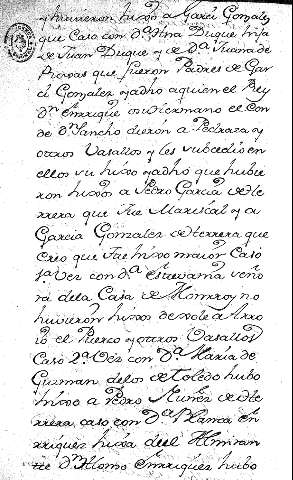 y huvieron hixos a Garci Gonzalez
que Caso con Dª Ana Duque hixa
de Juan Duque y de Dª Juana de
Roxas que fueron Padres de Gar
ci Gonzalez yadho aquien el Rey
Dn Enrrique su Hermano el Con
de Dn Sancho dieron a Pedraza y
otros Vasallos y les subcedio en
ellos su hixo yadho que hubie
ron hixos a Pedro Garcia de He
rrera que fue Mariscal y a
Garcia Gonzalez de Herrera que
creo que fue hixo maior Caso
1ª Vez con Dª Estevania Seño
ra dela Casa de Monrroy no
huvieron hixos de
el Puerco y otros Vasallos
Caso 2ª Vez con Dª Maria de
Guzman delos de Toledo hubo
hixo a Pedro Nuñez de He
rrera, caso con Dª Blanca En
rriquez hixa del Almiran
te Dn Alonso Enrriquez hubo